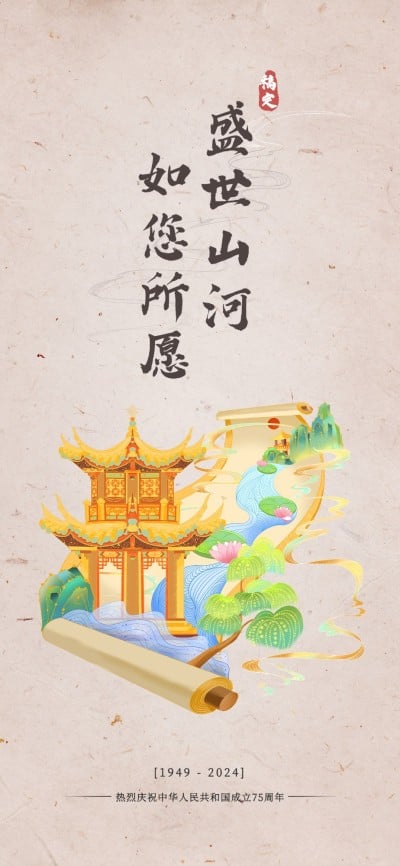 稿定
盛世山河
如您所愿
[1949 - 2024]
热烈庆祝中华人民共和国成立75周年